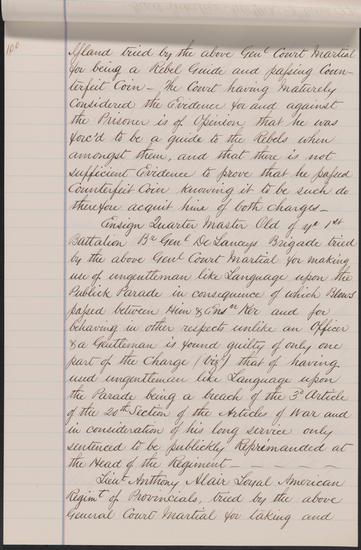 100
Island tried by the above Genl. Court Martial
for being a Rebel Guide and passing Coun-
terfeit Coin - The Court having Maturely
Considered the Evidence for and against
the Prisoner is of Opinion that he was
forc'd to be a guide to the Rebels when
amongst them, and that there is not
sufficient Evidence to prove that he passed
Counterfeit Coin knowing it to be such do
therefore acquit him of both charges -
Ensign Quarter Master Old of ye 1st
Battalion Br. Genl. De Lanceys Brigade tried
by the above Genl Court Martial for making
use of ungentleman like Language upon the
Publick Parade in consequence of which Blows
passed between Him & Ensn Ker and for
behaving in other respects unlike an Officer
& a Gentleman is found guilty of only one
part of the Charge (Viz) that of having
used ungentleman like Language upon
the Parade being a breach of the 3d Article
of the 20th Section of the Articles of War and
in consideration of his long service only
sentenced to be publickly Reprimanded at
the Head of the Regiment -
Lieut Anthony Allair Loyal American
Regimt of Provincials, tried by the above
General Court Martial for taking and